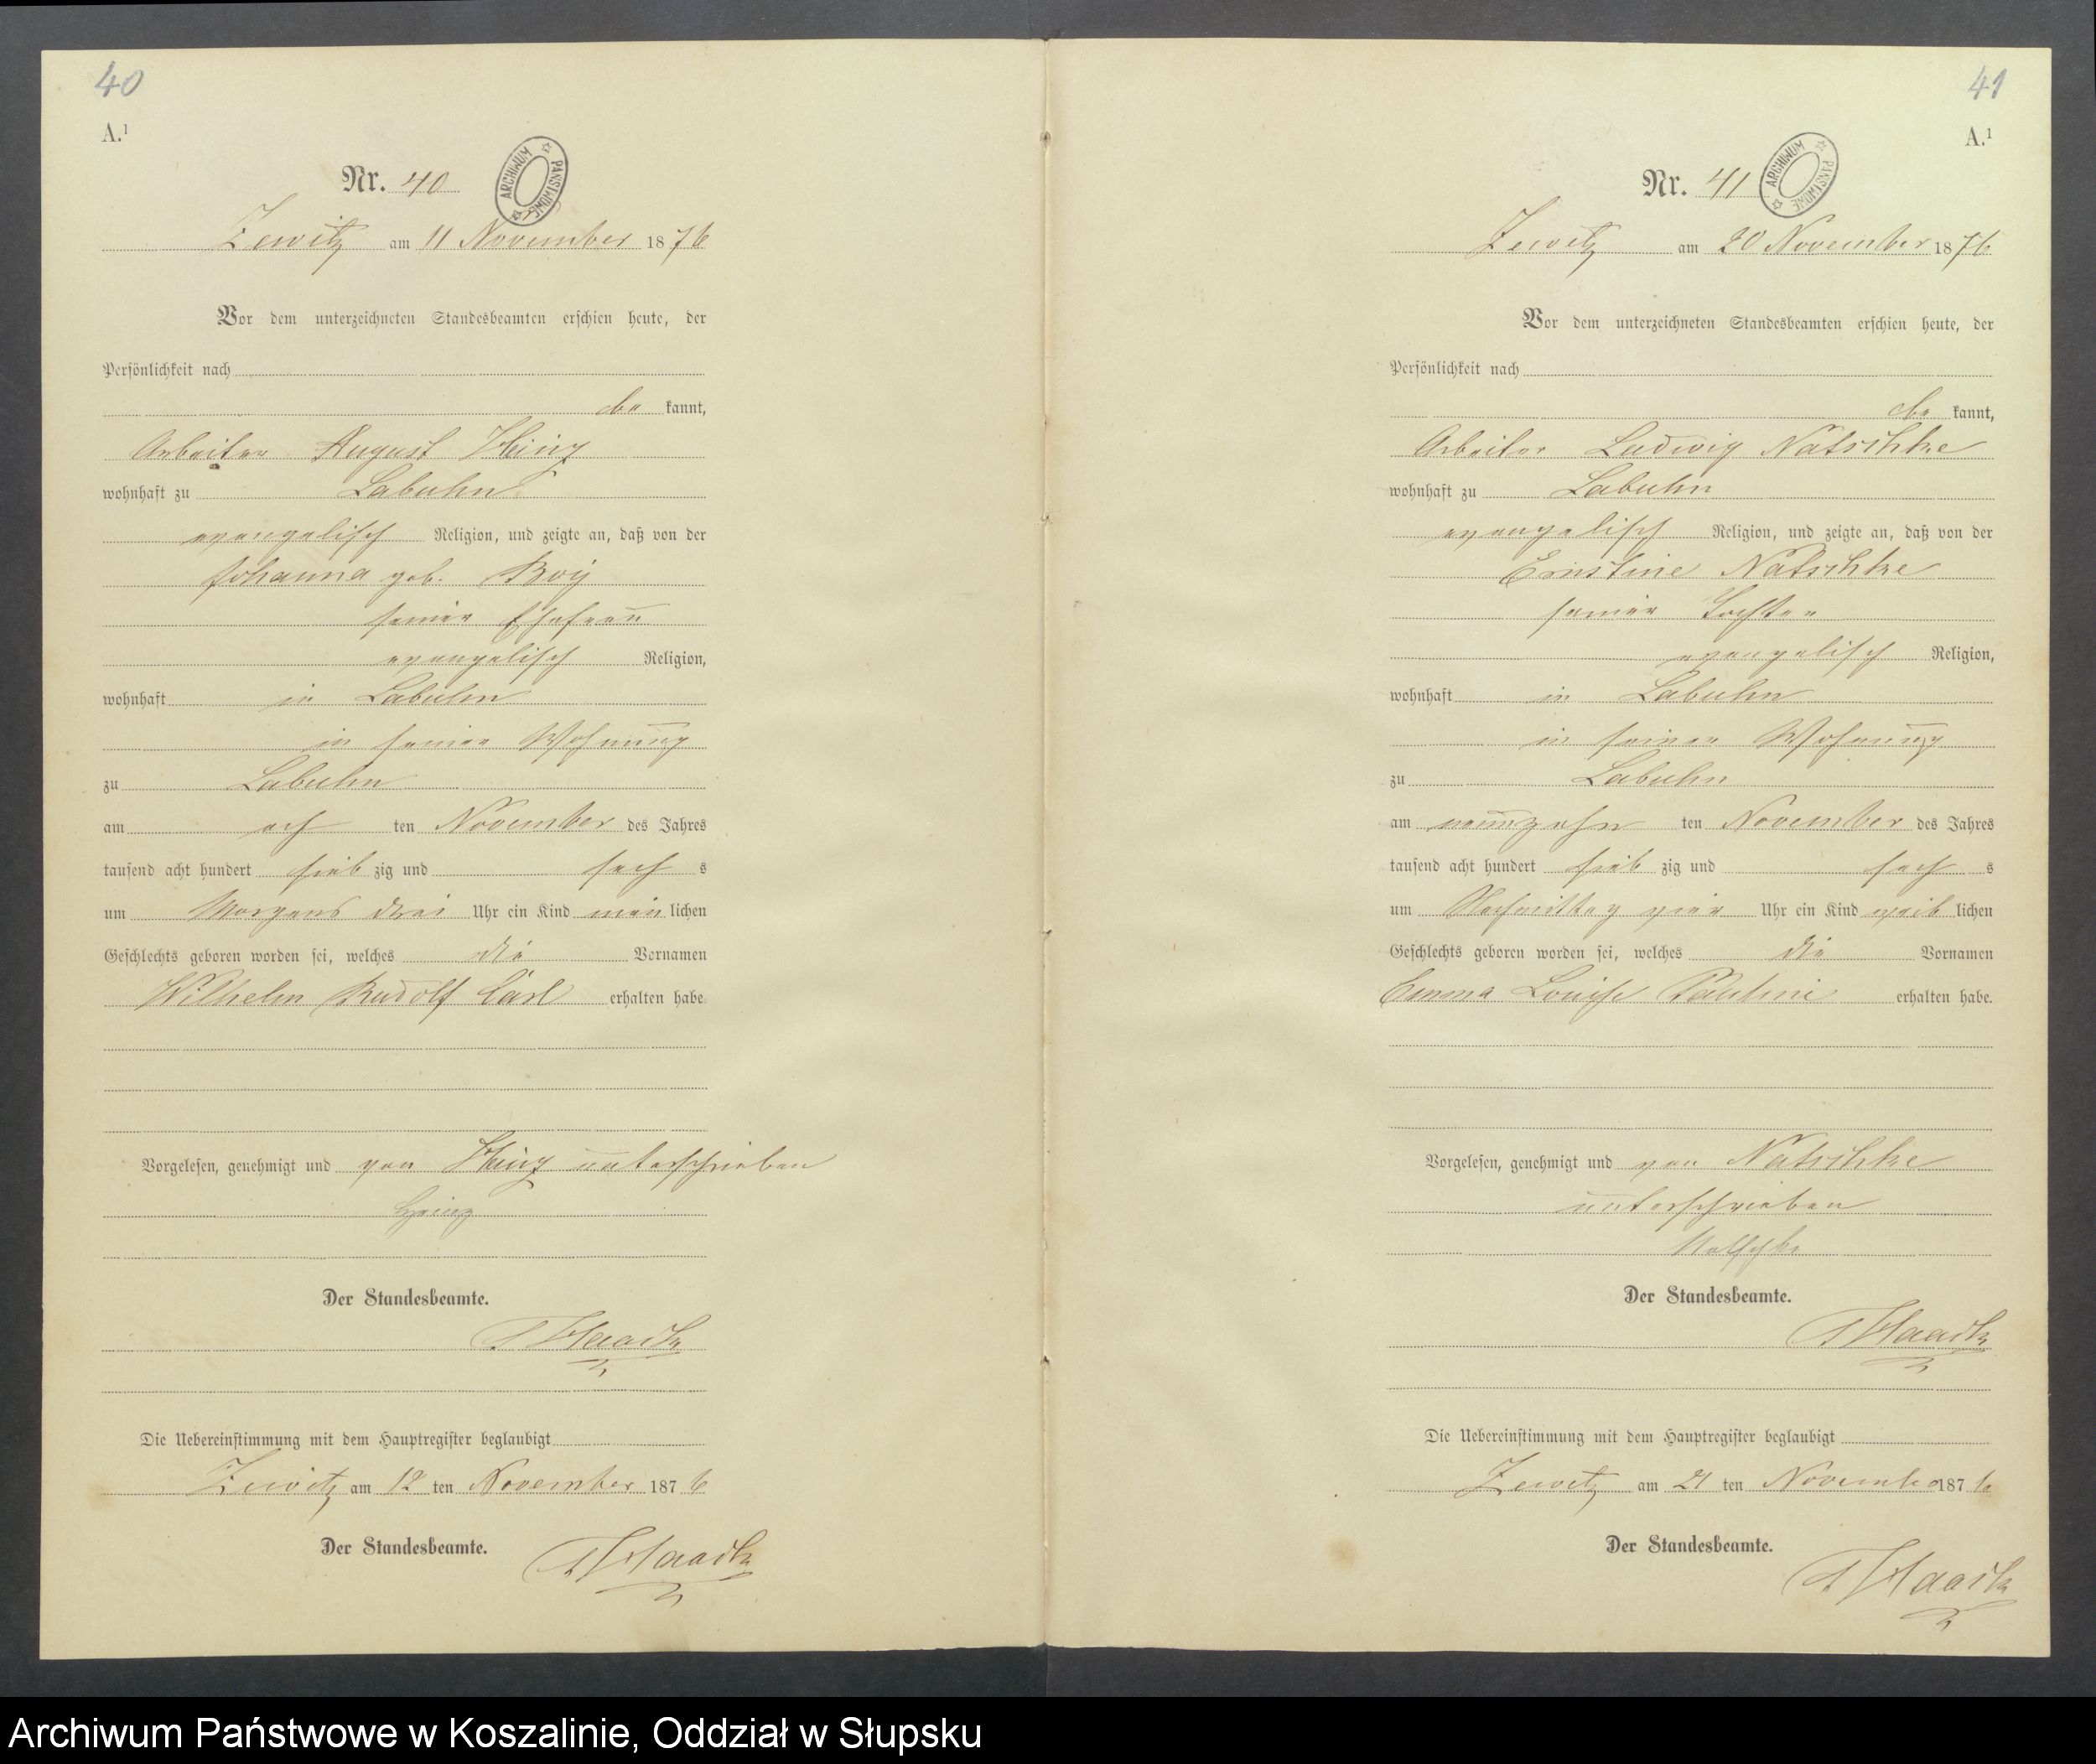 40
A.¹
Nr. 40
ARCHIWUM PAŃSTWOWE
Zewitz am 11 November 1876
Vor dem unterzeichneten Standesbeamten erschien heute, der
Persönlichkeit nach
be kannt,
Arbeiter August Heinz
wohnhaft zu Labuhn
evangelisch Religion, und zeigte an, daß von der
Johanna geb. Boy
seiner Ehefrau
evangelisch Religion,
wohnhaft in Labuhn
in seiner Wohnung
zu Labuhn
am ach ten November des Jahres
tausend acht hundert sieb zig und sech s
um Morgens drei Uhr ein Kind män lichen
Geschlechts geboren worden sei, welches die Vornamen
Wilhelm Rudolf Carl erhalten habe
Vorgelesen, genehmigt und von Heinz unterschrieben
Heinz
Der Standesbeamte.
Haack
Die Uebereinstimmung mit dem Hauptregister beglaubigt
Zewitz am 12 ten November 1876
Der Standesbeamte.
Haack
41
A.¹
Nr. 41
ARCHIWUM PAŃSTWOWE
Zewitz am 20 November 1876
Vor dem unterzeichneten Standesbeamten erschien heute, der
Persönlichkeit nach
be kannt,
Arbeiter Ludwig Natschke
wohnhaft zu Labuhn
evangelisch Religion, und zeigte an, daß von der
Ernstine Natschke
seiner Tochter
evangelisch Religion,
wohnhaft in Labuhn
in seiner Wohnung
zu Labuhn
am neunzehn ten November des Jahres
tausend acht hundert sieb zig und sech s
um Nachmittag vier Uhr ein Kind weib lichen
Geschlechts geboren worden sei, welches die Vornamen
Emma Louise Pauline erhalten habe.
Vorgelesen, genehmigt und von Natschke
unterschrieben
Natschke
Der Standesbeamte.
Haack
Die Uebereinstimmung mit dem Hauptregister beglaubigt
Zewitz am 21 ten November 1876
Der Standesbeamte.
Haack
Archiwum Państwowe w Koszalinie, Oddział w Słupsku